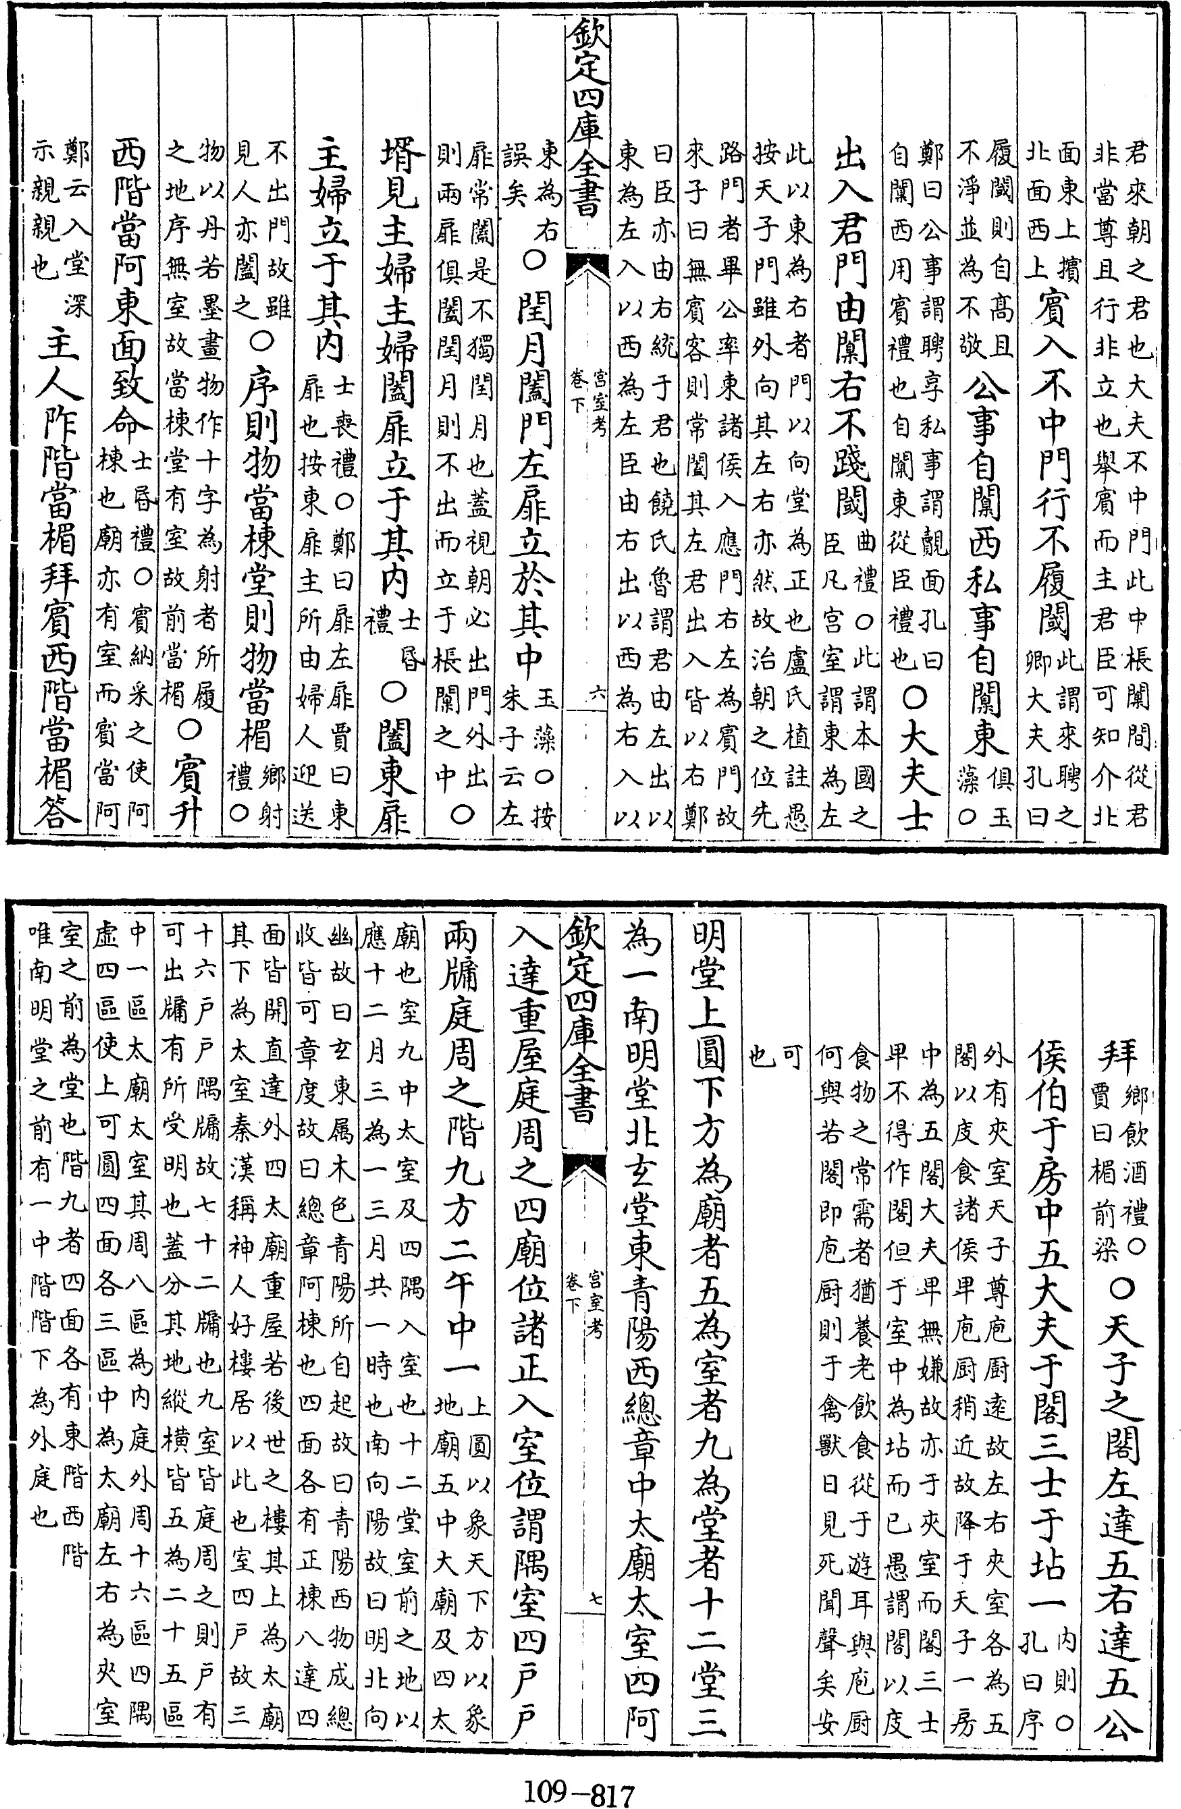 君來朝之君也大夫不中門此中棖闑間從君
非當尊且行非立也舉賓而主君臣可知介北
面東上擯
北面西上
賓入不中門行不履閾
此謂來聘之
卿大夫孔曰
履閾則自高且
不淨並為不敬
公事自闑西私事自闑東
俱玉
藻○
鄭曰公事謂聘享私事謂覿面孔曰
自闑西用賓禮也自闑東從臣禮也
○大夫士
出入君門由闑右不踐閾
曲禮○此謂本國之
臣凡宮室謂東為左
此以東為右者門以向堂為正也盧氏植註愚
按天子門雖外向其左右亦然故治朝之位先
路門者畢公率東諸侯入應門右左為賓門故
來子曰無賓客則常闔其左君出入皆以右鄭
曰臣亦由右統于君也饒氏魯謂君由左出以
東為左入以西為左臣由右出以西為右入以
欽定四庫全書
宮室考
卷下
六
東為右
誤矣
○閏月闔門左扉立於其中
玉藻○按
朱子云左
扉常闔是不獨閏月也蓋視朝必出門外出
則兩扉俱闔閏月則不出而立于棖闑之中○
壻見主婦主婦闔扉立于其內
士昏
禮
○闔東扉
主婦立于其內
士喪禮○鄭曰扉左扉賈曰東
扉也按東扉主所由婦人迎送
不出門故雖
見人亦闔之
○序則物當棟堂則物當楣
鄉射
禮○
物以丹若墨畫物作十字為射者所履
之地序無室故當棟堂有室故前當楣
○賓升
西階當阿東面致命
士昏禮○賓納采之使阿
棟也廟亦有室而賓當阿
鄭云入堂深
示親親也
主人阼階當楣拜賓西階當楣答
拜
鄉飲酒禮○
賈曰楣前梁
○天子之閣左達五右達五公
侯伯于房中五大夫于閣三士于坫一
內則○
孔曰序
外有夾室天子尊庖厨遠故左右夾室各為五
閣以庋食諸侯卑庖厨稍近故降于天子一房
中為五閣大夫卑無嫌故亦于夾室而閣三士
卑不得作閣但于室中為坫而已愚謂閣以庋
食物之常需者猶養老飲食從于遊耳與庖厨
何與若閣即庖厨則于禽獸日見死聞聲矣安
可
也
明堂上圓下方為廟者五為室者九為堂者十二堂三
為一南明堂北玄堂東青陽西總章中太廟太室四阿
欽定四庫全書
宮室考
卷下
七
入達重屋庭周之四廟位諸正入室位謂隅室四戶戶
兩牖庭周之階九方二午中一
上圓以象天下方以象
地廟五中大廟及四太
廟也室九中太室及四隅入室也十二堂室前之地以
應十二月三為一三月共一時也南向陽故曰明北向
幽故曰玄東属木色青陽所自起故曰青陽西物成總
收皆可章度故曰總章阿棟也四面各有正棟八達四
面皆開直達外四太廟重屋若後世之樓其上為太廟
其下為太室秦漢稱神人好樓居以此也室四戶故三
十六戶戶隅牖故七十二牖也九室皆庭周之則戶有
可出牖有所受明也蓋分其地縱橫皆五為二十五區
中一區太廟太室其周八區為內庭外周十六區四隅
虛四區使上可圓四面各三區中為太廟左右為夾室
室之前為堂也階九者四面各有東階西階
唯南明堂之前有一中階階下為外庭也
109-817